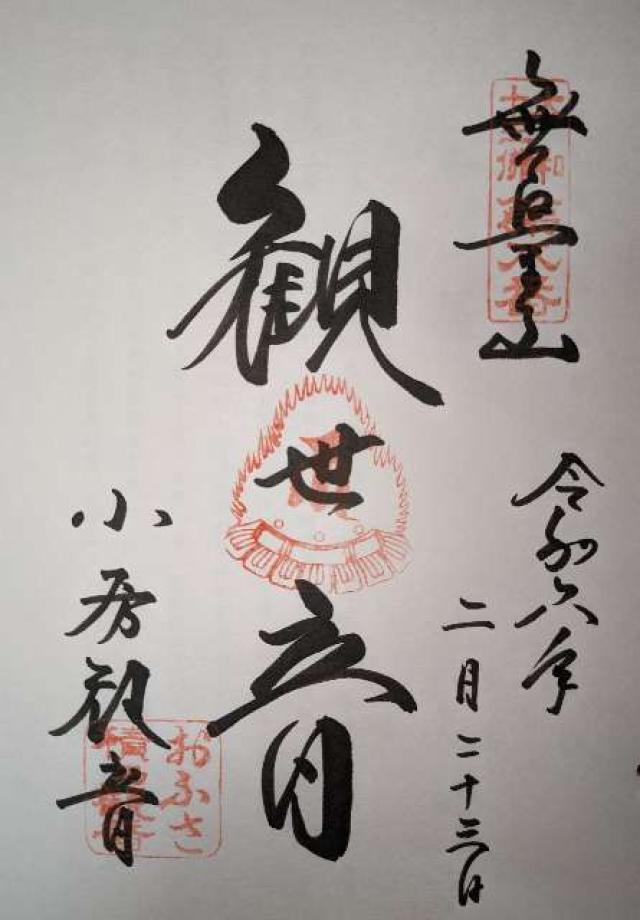 無量山
令和六年
二月二十三日
観世音
小房観音
おふさ